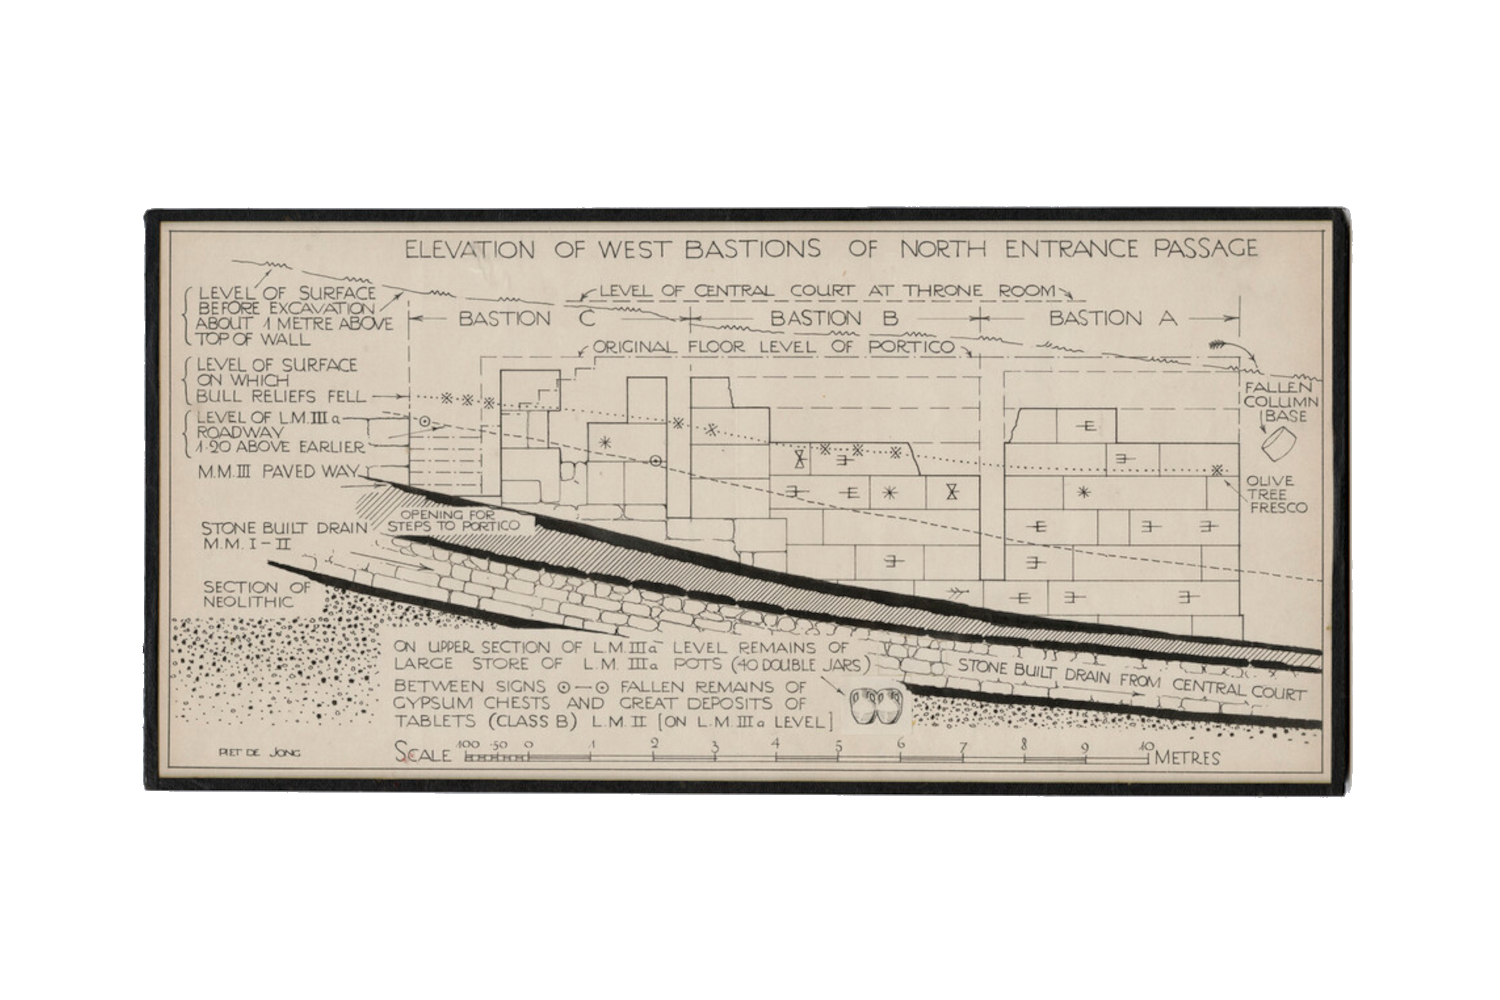 ELEVATION OF WEST BASTIONS OF NORTH ENTRANCE PASSAGE
LEVEL OF SURFACE
BEFORE EXCAVATION
ABOUT 1 METRE ABOVE
TOP OF WALL
LEVEL OF CENTRAL COURT AT THRONE ROOM
BASTION C
BASTION B
BASTION A
ORIGINAL FLOOR LEVEL OF PORTICO
LEVEL OF SURFACE
ON WHICH
BULL RELIEFS FELL
LEVEL OF L.M.III a
ROADWAY
1·20 ABOVE EARLIER
M.M.III PAVED WAY
FALLEN
COLUMN
BASE
OLIVE
TREE
FRESCO
OPENING FOR
STEPS TO PORTICO
STONE BUILT DRAIN
M.M. I-II
SECTION OF
NEOLITHIC
ON UPPER SECTION OF L.M.IIIa LEVEL REMAINS OF
LARGE STORE OF L.M. IIIa POTS (40 DOUBLE JARS)
BETWEEN SIGNS ⊙—⊙ FALLEN REMAINS OF
GYPSUM CHESTS AND GREAT DEPOSITS OF
TABLETS (CLASS B) L.M. II [ON L.M.IIIa LEVEL]
STONE BUILT DRAIN FROM CENTRAL COURT
PIET DE JONG
SCALE 100 50 0 1 2 3 4 5 6 7 8 9 10 METRES